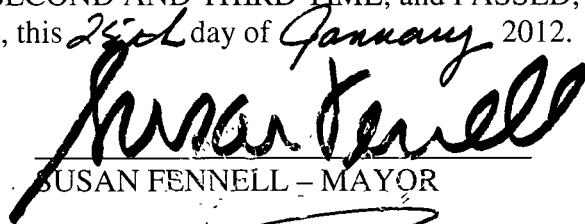 SECOND AND THIRD TIME, and PASSED,
, this 25th day of January 2012.
Susan Fennell
SUSAN FENNELL – MAYOR